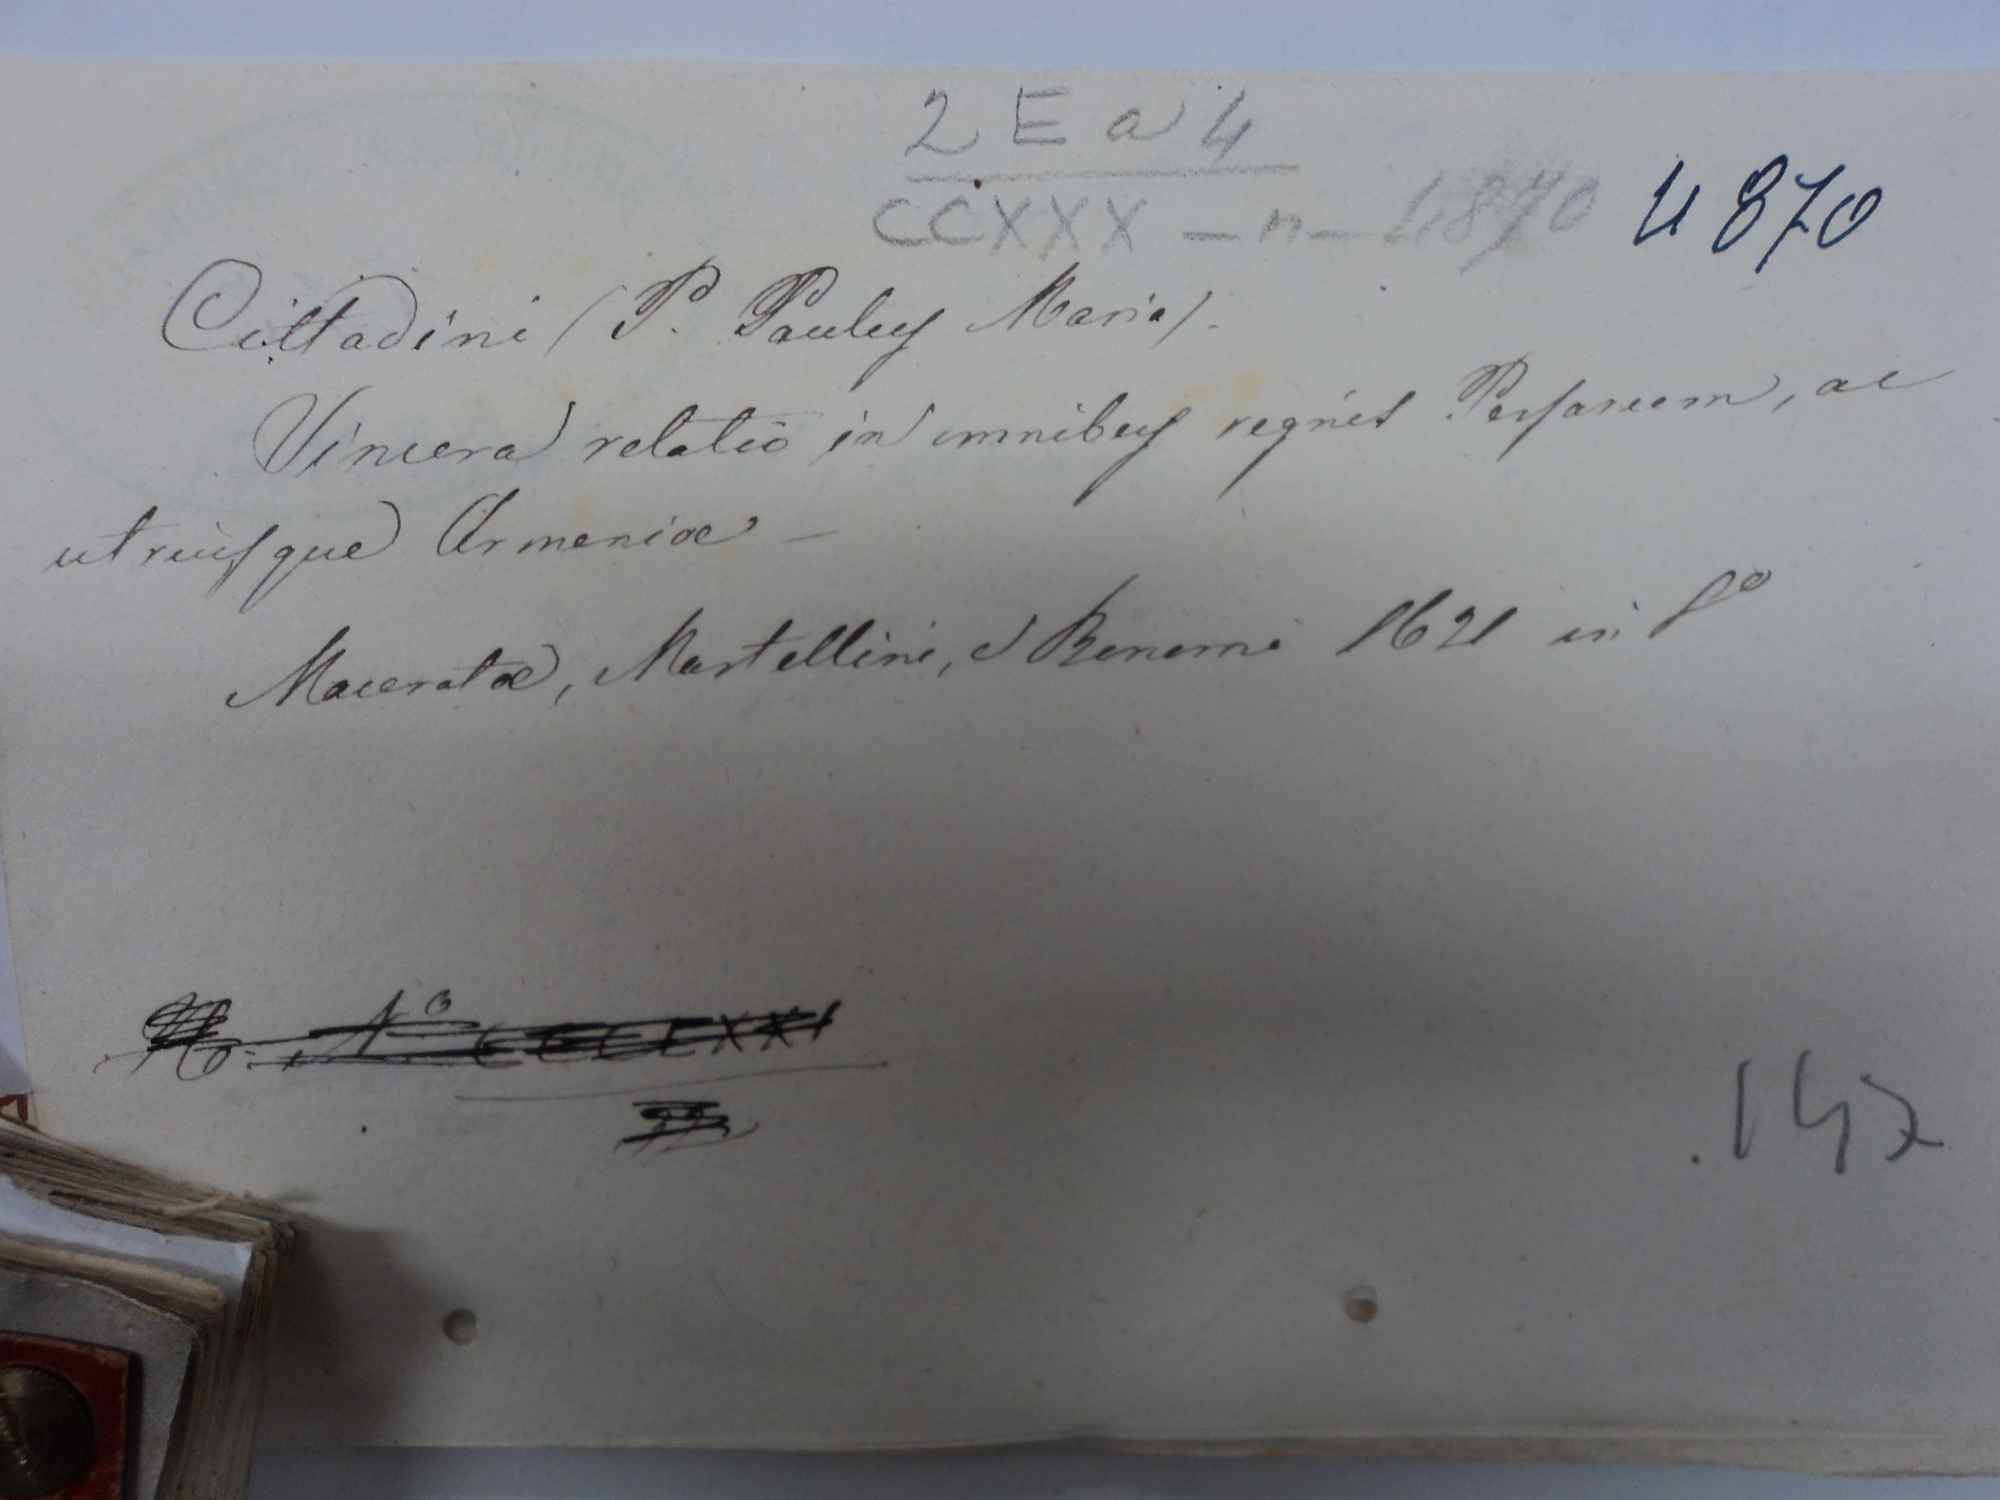 2 E a 4
CCXXX - n - 4870 4870
Cittadini (P. Paulus Maria).
Sincera relatio in omnibus regnis Persarum, ac
utriusque Armeniæ -
Maceratæ, Martellini, e Bonomi 1621 in fº
Nº CCCCLXXI
142